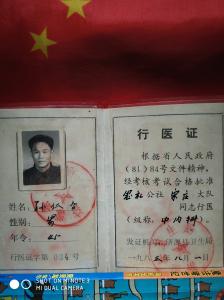 姓名:孙
性别:男
年令:45
行医证字第 号
行医证
根据省人民政府
(81)84号文件精神,
经考核考试合格批准
公社 大队
同志行医
(级称: 中内科)
发证机 卫生局
一九八 年八月一日
SHOT ON MI NOTE 3
MI DUAL CAMERA